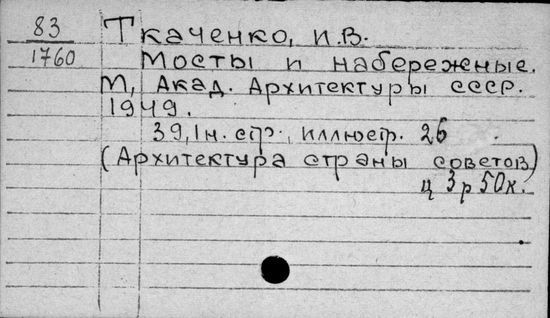 83 Ткаченко, И.В.
1760 Мосты и набережные.
М, Акад. Архитектуры СССР.
1949.
39,1н. стр., иллюстр. 26
(Архитектура страны советов)
ц 3р 50к.